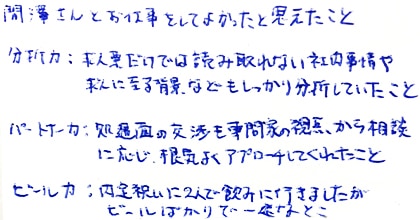 間澤さんとお仕事をしてよかったと思えたこと
分析力：求人票だけでは読み取れない社内事情や
求人に至る背景などもしっかり分析していたこと
パートナー力：処遇面の交渉も専門家の視点から相談
に応じ、根気よくアプローチしてくれたこと
ビール力：内定祝いに2人で飲みに行きましたが
ビールばかりで一途なとこ